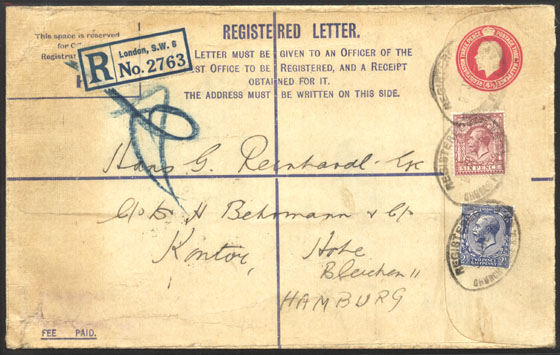 REGISTERED LETTER.
This space is reserved
for
Registrar
London, S.W. 6
R No. 2763
LETTER MUST BE GIVEN TO AN OFFICER OF THE
ST OFFICE TO BE REGISTERED, AND A RECEIPT
OBTAINED FOR IT.
THE ADDRESS MUST BE WRITTEN ON THIS SIDE.
REGISTERED
SIX PENCE
REGISTERED
REGISTERED
Hans G. Reinhardt Esq
c/o H Behrmann & Co
Kontor, Hohe
Bleichen 11
HAMBURG
FEE PAID.